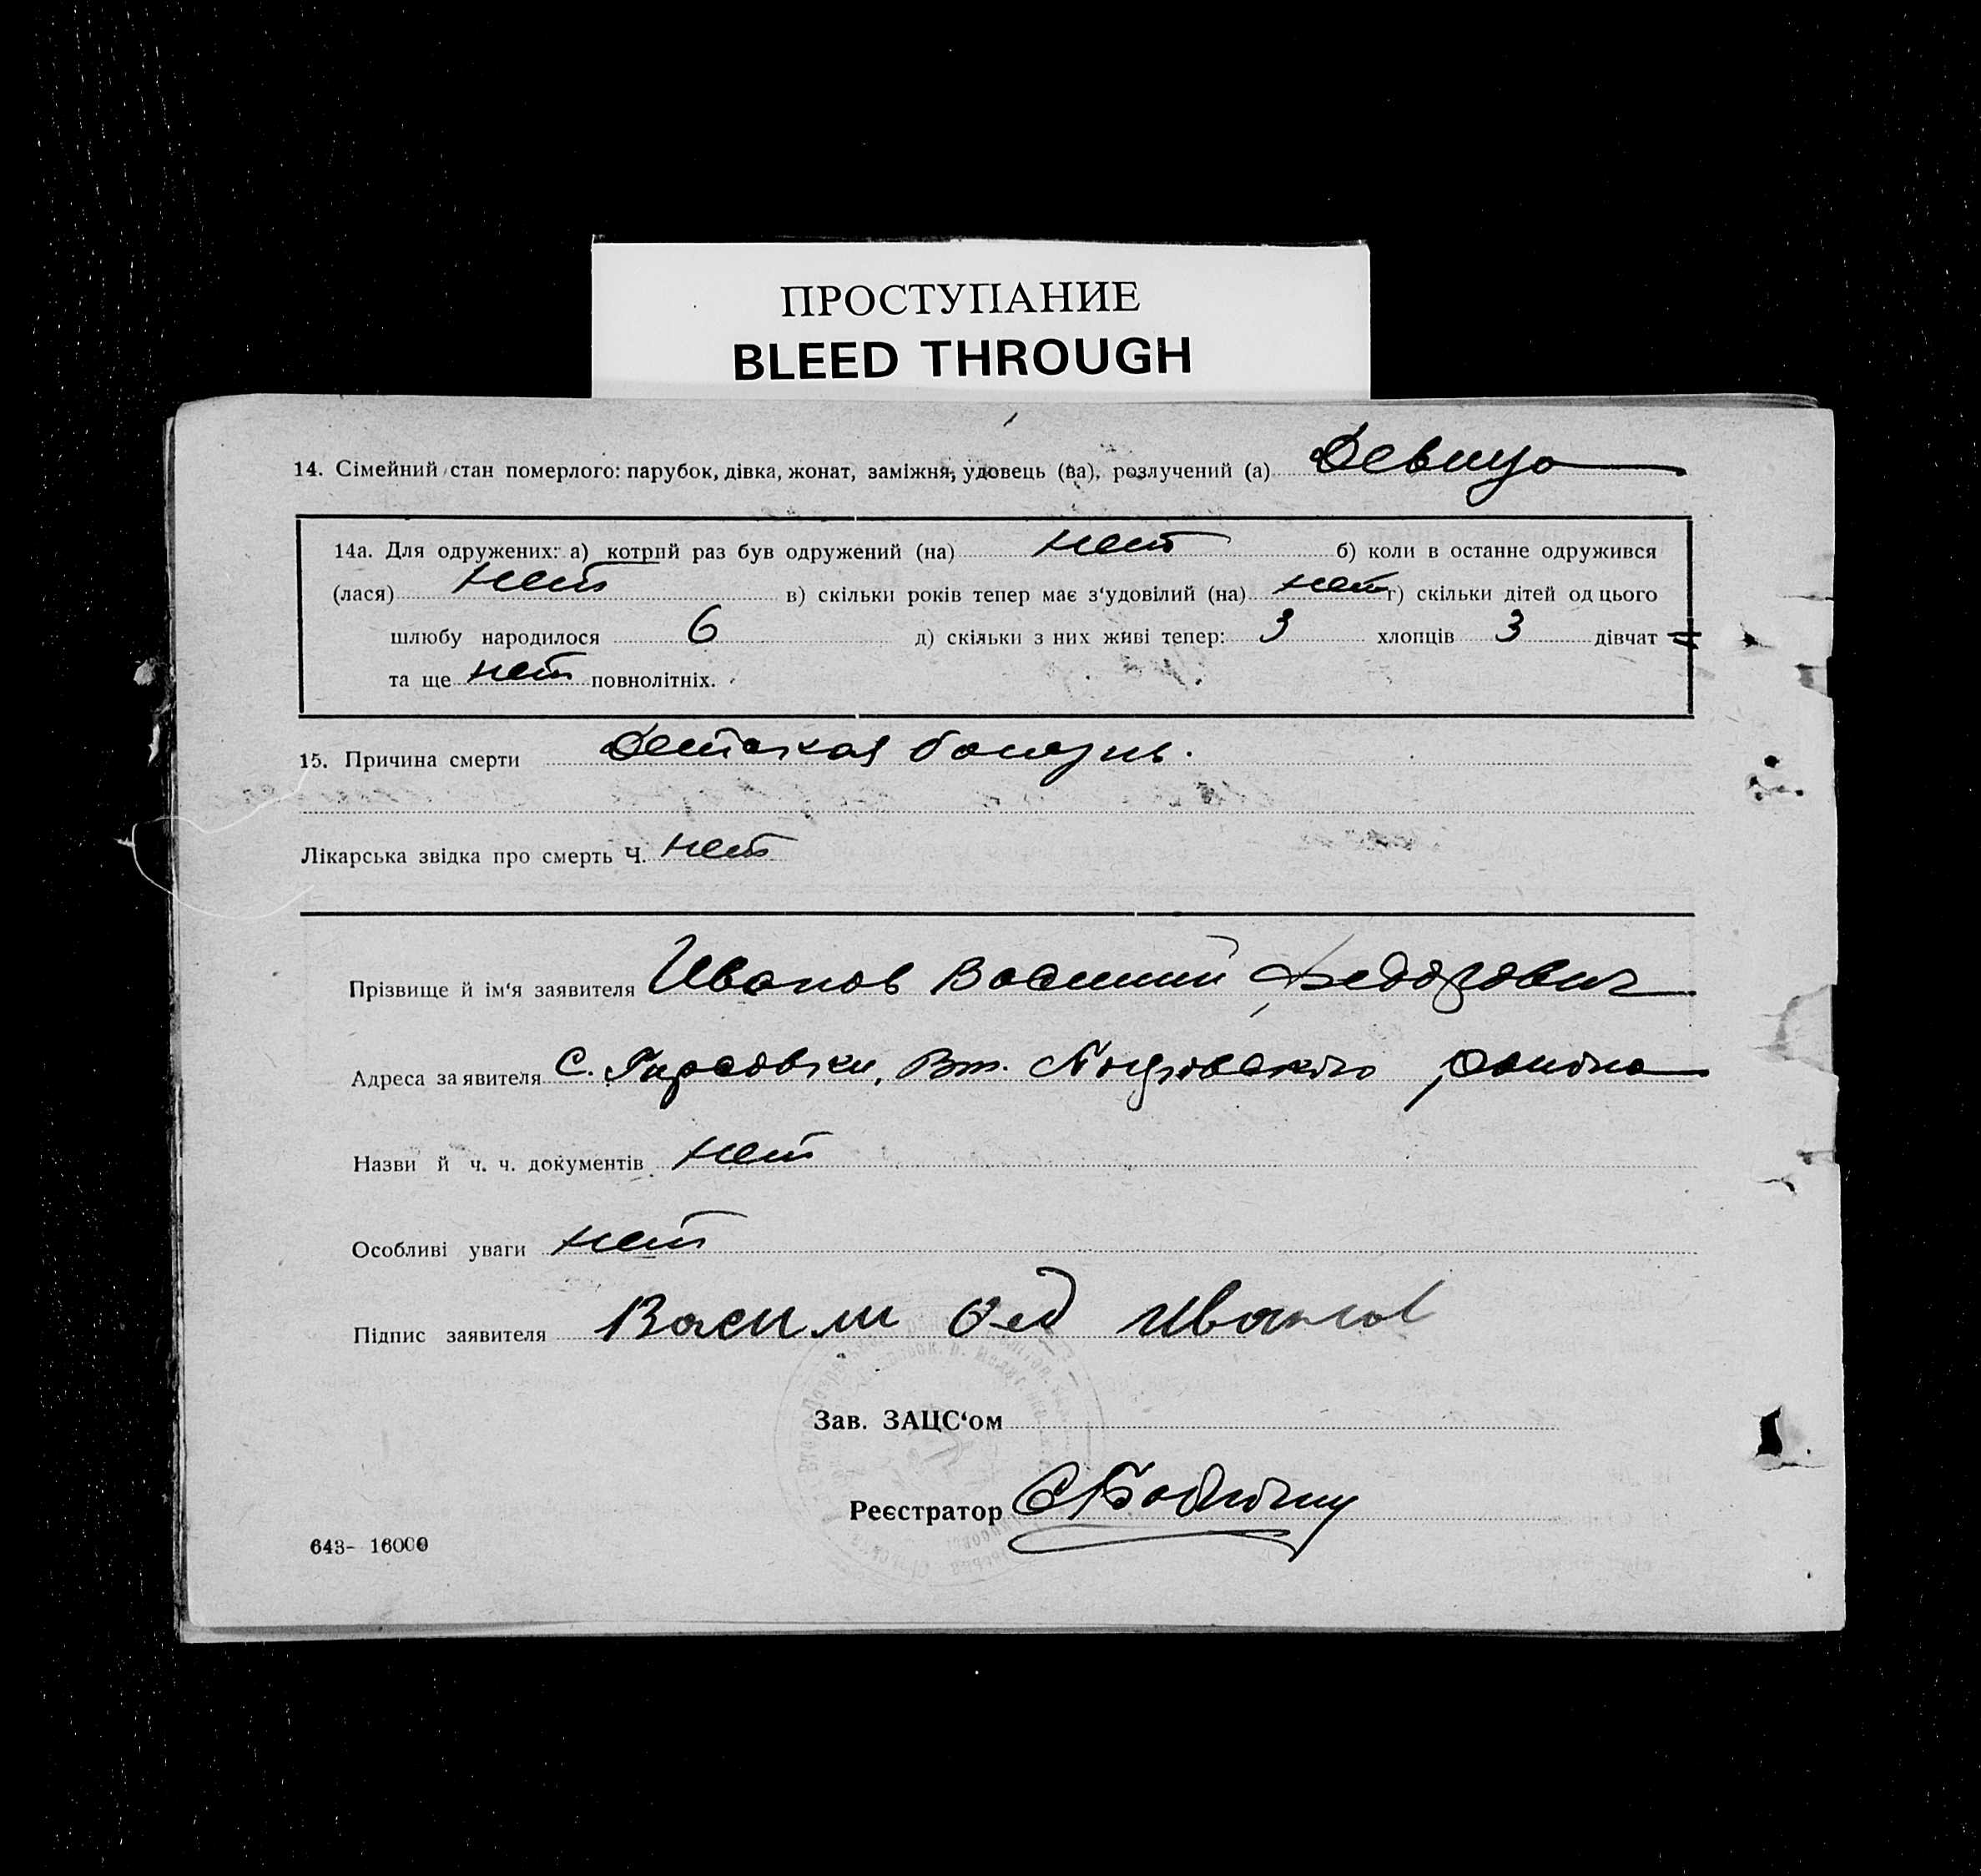 ПРОСТУПАНИЕ
BLEED THROUGH
14. Сімейний стан померлого: парубок, дівка, жонат, заміжня, удовець (ва), розлучений (а) Девица
14а. Для одружених: а) котрий раз був одружений (на) нет б) коли в останне одружився
(лася) нет в) скільки років тепер має з'удовілий (на) нет г) скільки дітей од цього
шлюбу народилося 6 д) скільки з них живі тепер: 3 хлопців 3 дівчат
та ще нет повнолітніх.
15. Причина смерти Детская болезнь.
Лікарська звідка про смерть Ч. нет
Прізвище й ім'я заявителя Иванов Василий Федорович
Адреса заявителя С. Вт. района
Назви й ч. ч. документів нет
Особливі уваги нет
Підпис заявителя Васили Фед Иванов
Зав. ЗАЦС'ом
Реєстратор
643- 16000